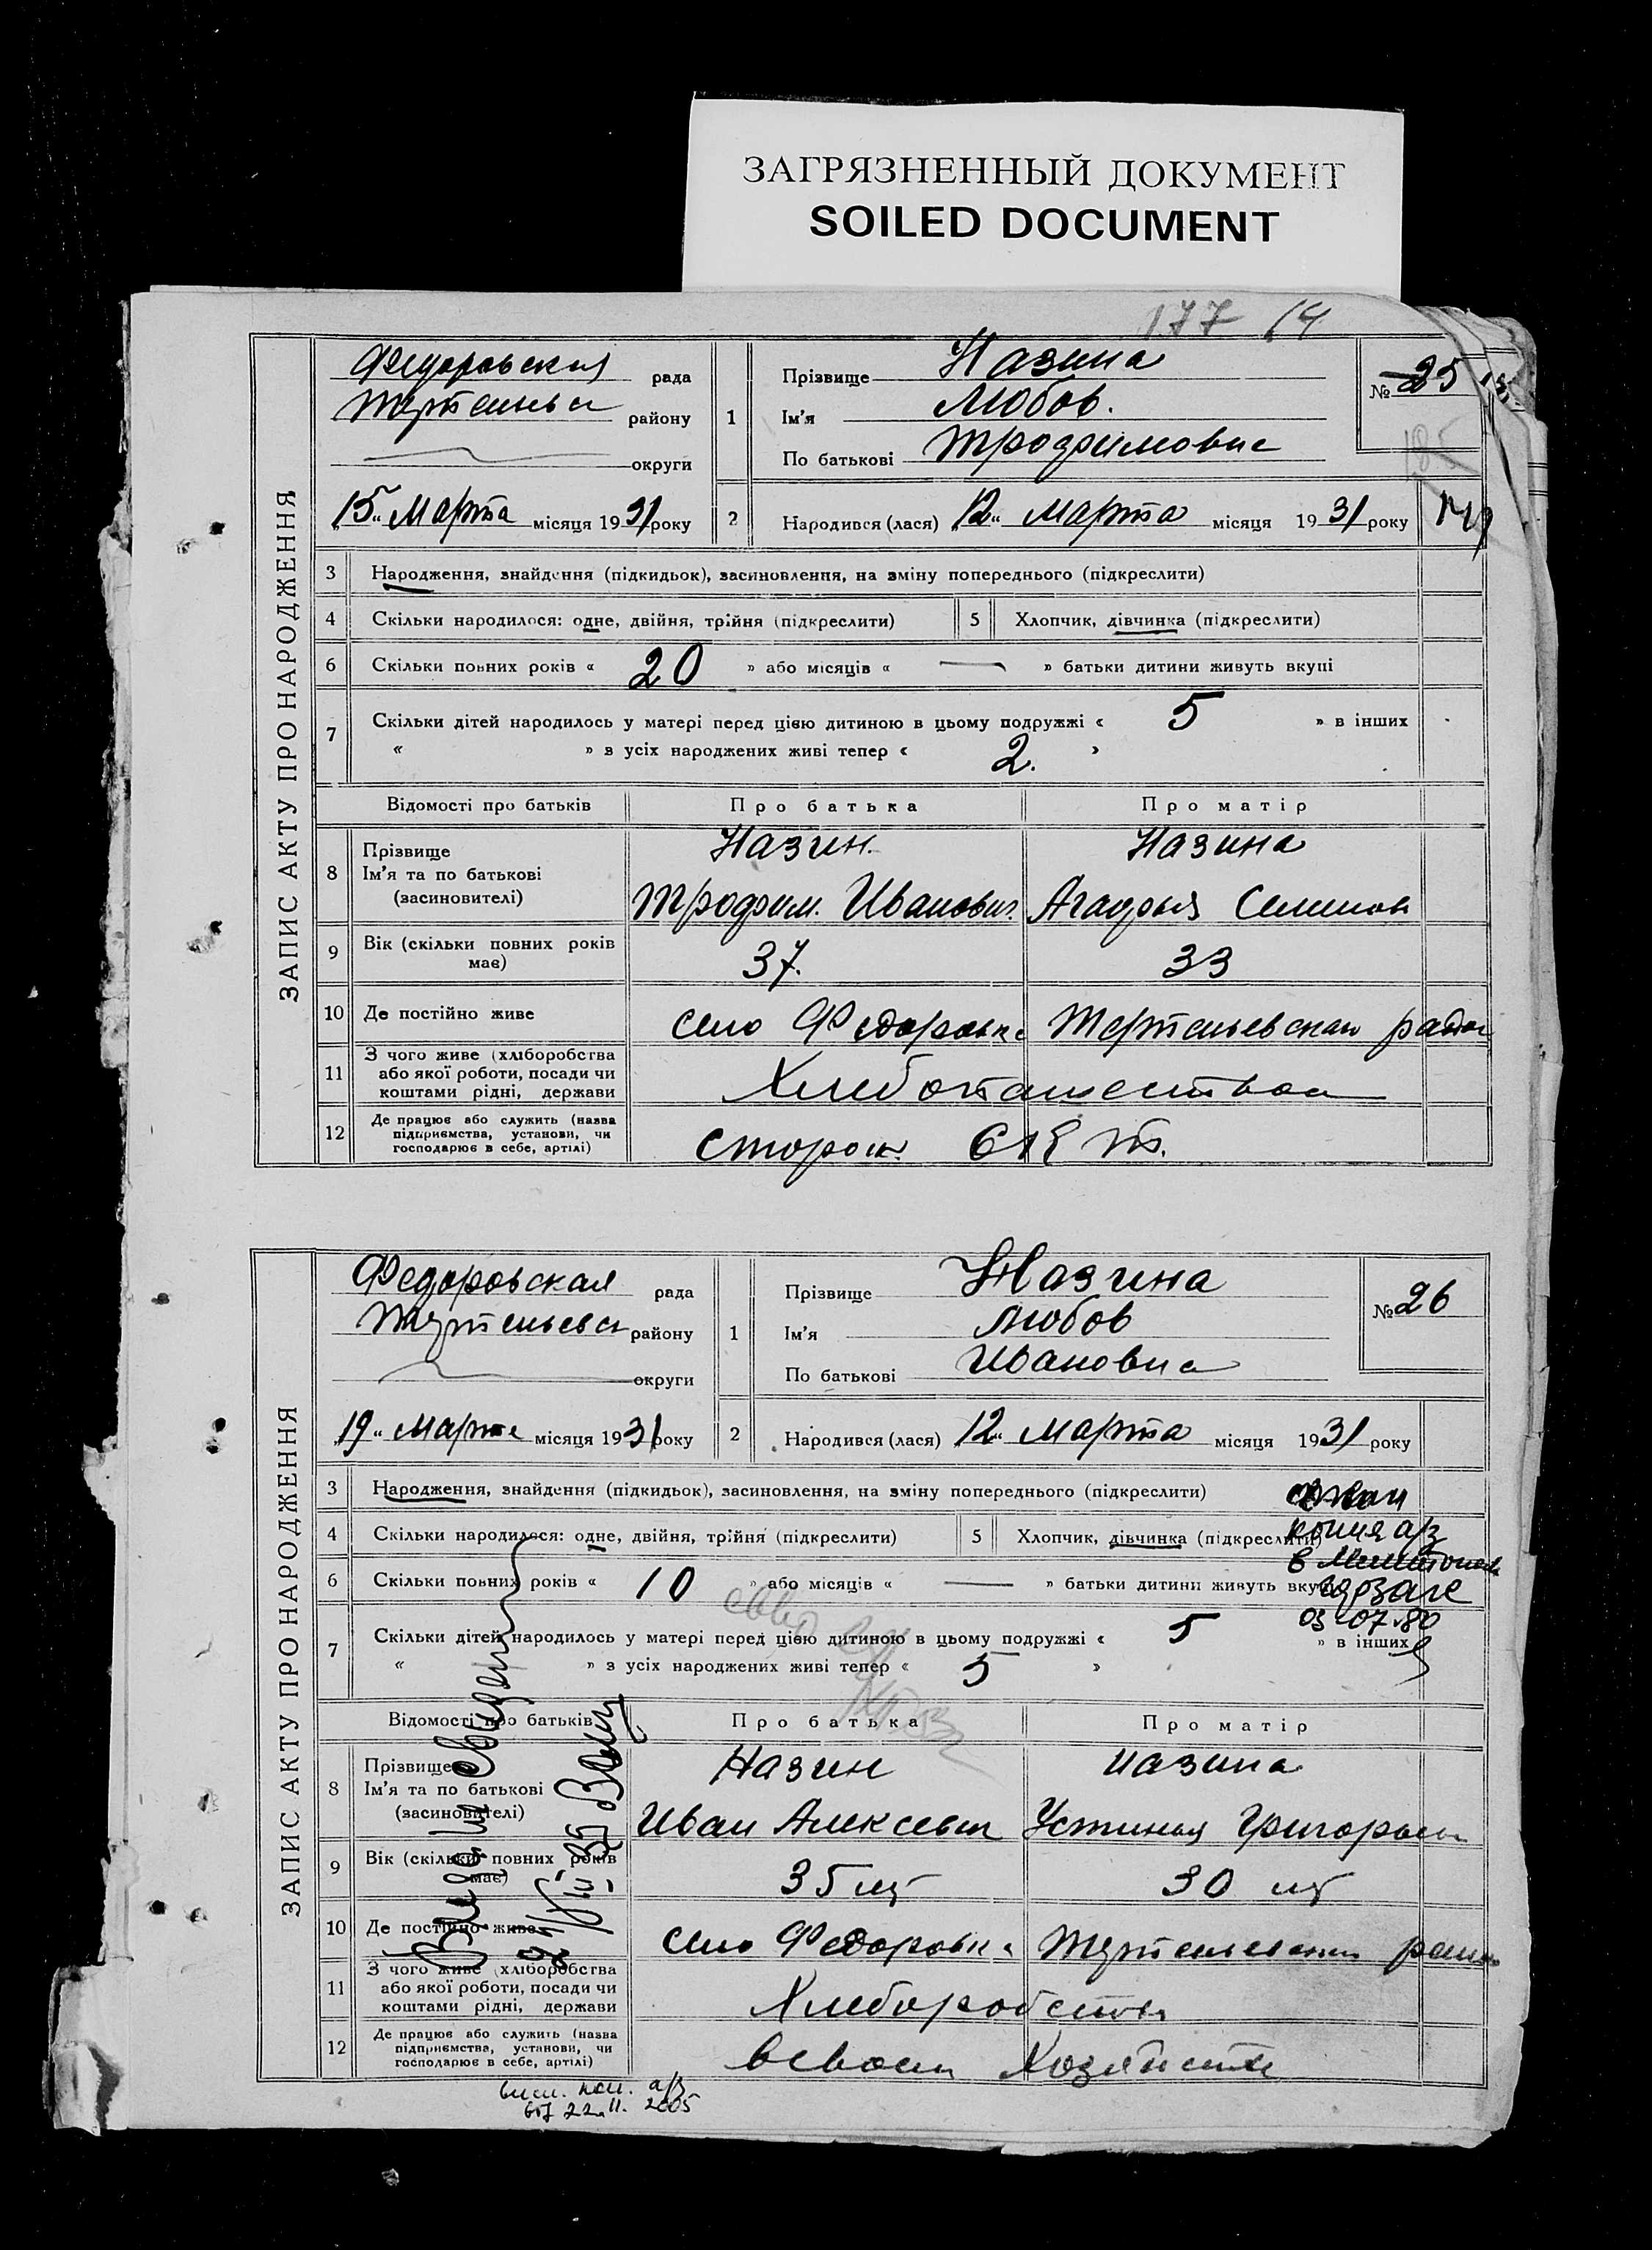 ЗАГРЯЗНЕННЫЙ ДОКУМЕНТ
SOILED DOCUMENT
177 14
ЗАПИС АКТУ ПРО НАРОДЖЕННЯ
Федоровская рада
району
округи
15 " Марта місяця 1931 року
1
Прізвище Назина
Ім'я Любов.
По батькові Трофимовна
№ 25
2 Народився (лася) 12 " Марта місяця 1931 року
3 Народження, знайдення (підкидьок), засиновлення, на зміну попереднього (підкреслити)
4 Скільки народилося: одне, двійня, трійня (підкреслити) 5 Хлопчик, дівчинка (підкреслити)
6 Скільки повних років « 20 » або місяців « — » батьки дитини живуть вкупі
7 Скільки дітей народилось у матері перед цією дитиною в цьому подружжі « 5 » в інших
« » з усіх народжених живі тепер « 2. »
Відомості про батьків Про батька Про матір
8 Прізвище Назин. Назина
Ім'я та по батькові
(засиновителі) Трофим. Иванович.
9 Вік (скільки повних років має) 37. 33
10 Де постійно живе село Федоровка
11 З чого живе (хліборобства
або якої роботи, посади чи
коштами рідні, держави
12 Де працює або служить (назва
підприємства, установи, чи
господарює в себе, артілі) сторож.
ЗАПИС АКТУ ПРО НАРОДЖЕННЯ
Федоровская рада
району
округи
19 " Марта місяця 1931 року
1
Прізвище Назина
Ім'я Любов
По батькові Ивановна
№ 26
2 Народився (лася) 12 " Марта місяця 1931 року
3 Народження, знайдення (підкидьок), засиновлення, на зміну попереднього (підкреслити)
4 Скільки народилося: одне, двійня, трійня (підкреслити) 5 Хлопчик, дівчинка (підкреслити)
копия а/з
6 Скільки повних років « 10 » або місяців « — » батьки дитини живуть вкупі
03.07.80
7 Скільки дітей народилось у матері перед цією дитиною в цьому подружжі « 5 » в інших
« » з усіх народжених живі тепер « 5 »
Відомості про батьків Про батька Про матір
8 Прізвище Назин Назина
Ім'я та по батькові
(засиновителі) Иван Алексеевич Устиния
9 Вік (скільки повних років має) 35 лет 30 лет
10 Де постійно живе село Федоровка
11 З чого живе (хліборобства
або якої роботи, посади чи
коштами рідні, держави Хлеборобство
12 Де працює або служить (назва
підприємства, установи, чи
господарює в себе, артілі) в своем хозяйстве
а/з
22. 11. 2005